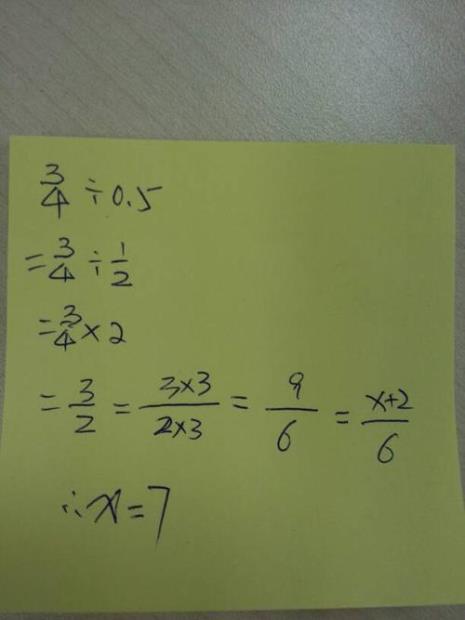 3/4 ÷ 0.5
= 3/4 ÷ 1/2
= 3/4 × 2
= 3/2 = 3×3/2×3 = 9/6 = x+2/6
∴ x = 7